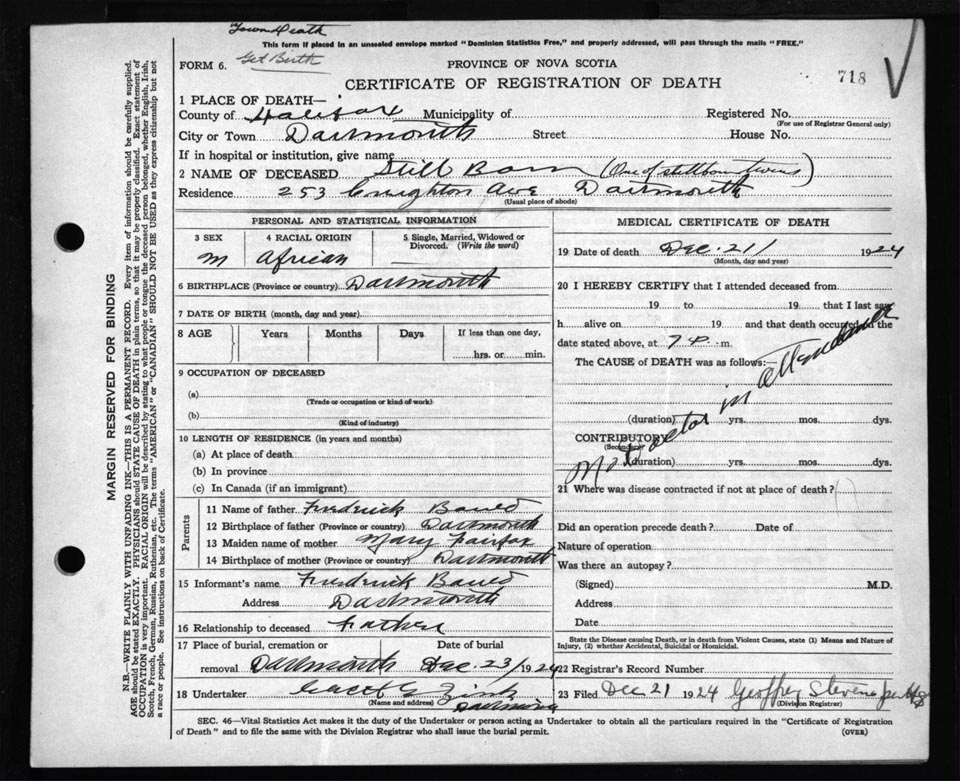 Town Death
This form if placed in an unsealed envelope marked "Dominion Statistics Free," and properly addressed, will pass through the mails "FREE."
Get Birth
FORM 6.
PROVINCE OF NOVA SCOTIA
CERTIFICATE OF REGISTRATION OF DEATH
718
1 PLACE OF DEATH—
County of Halifax Municipality of Registered No.
(For use of Registrar General only)
City or Town Dartmouth Street House No.
If in hospital or institution, give name
2 NAME OF DECEASED Still Born (One of stillborn twins)
Residence 253 Creighton Ave Dartmouth
(Usual place of abode)
PERSONAL AND STATISTICAL INFORMATION
3 SEX 4 RACIAL ORIGIN 5 Single, Married, Widowed or Divorced. (Write the word)
M African
6 BIRTHPLACE (Province or country) Dartmouth
7 DATE OF BIRTH (month, day and year)
8 AGE Years Months Days If less than one day,
hrs. or min.
9 OCCUPATION OF DECEASED
(a)
(Trade or occupation or kind of work)
(b)
(Kind of industry)
10 LENGTH OF RESIDENCE (in years and months)
(a) At place of death
(b) In province
(c) In Canada (if an immigrant)
Parents
11 Name of father Fredrick
12 Birthplace of father (Province or country) Dartmouth
13 Maiden name of mother Mary Fairfax
14 Birthplace of mother (Province or country) Dartmouth
15 Informant's name Fredrick
Address Dartmouth
16 Relationship to deceased Father
17 Place of burial, cremation or removal Date of burial
Dartmouth Dec. 23/1924
18 Undertaker Zink
(Name and address) Dartmouth
MEDICAL CERTIFICATE OF DEATH
19 Date of death Dec. 21/ 1924
(Month, day and year)
20 I HEREBY CERTIFY that I attended deceased from
19 to 19 that I last saw
h alive on 19 and that death occurred on the
date stated above, at 7 P. m.
The CAUSE of DEATH was as follows:—
No Doctor in attendance
(duration) yrs. mos. dys.
CONTRIBUTORY
(Secondary)
(duration) yrs. mos. dys.
21 Where was disease contracted if not at place of death?
Did an operation precede death? Date of
Nature of operation
Was there an autopsy?
(Signed) M.D.
Address
Date
State the Disease causing Death, or in death from Violent Causes, state (1) Means and Nature of
Injury, (2) whether Accidental, Suicidal or Homicidal.
22 Registrar's Record Number
23 Filed Dec 21 1924 Geoffrey Stevens
(Division Registrar)
SEC. 46—Vital Statistics Act makes it the duty of the Undertaker or person acting as Undertaker to obtain all the particulars required in the "Certificate of Registration
of Death" and to file the same with the Division Registrar who shall issue the burial permit. (OVER)
MARGIN RESERVED FOR BINDING
N.B.—WRITE PLAINLY WITH UNFADING INK—THIS IS A PERMANENT RECORD. Every item of information should be carefully supplied.
AGE should be stated EXACTLY. PHYSICIANS should STATE CAUSE OF DEATH in plain terms, so that it may be properly classified. Exact statement of
OCCUPATION is very important. RACIAL ORIGIN will be described by stating to what people or tongue the deceased person belonged, whether English, Irish,
Scotch, French, German, Russian, Ruthenian, etc. The terms "AMERICAN" or "CANADIAN" SHOULD NOT BE USED as they express citizenship but not
a race or people. See instructions on back of Certificate.